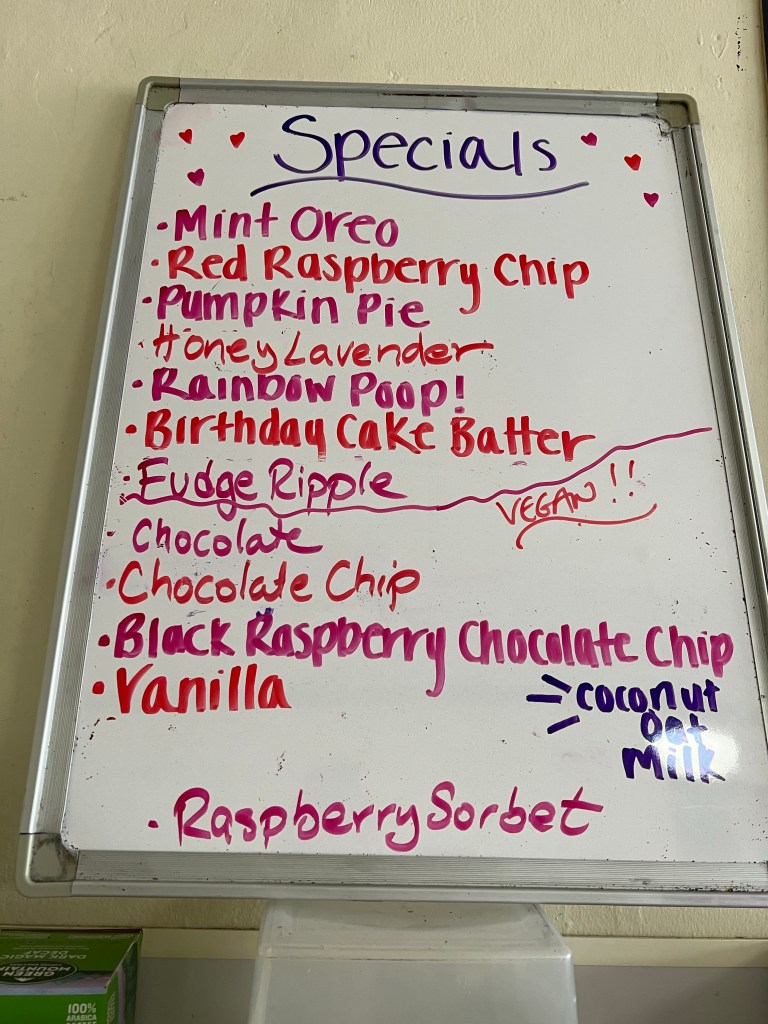 Specials
• Mint Oreo
• Red Raspberry Chip
• Pumpkin Pie
• Honey Lavender
• Rainbow Poop!
• Birthday Cake Batter
• Fudge Ripple
VEGAN!!
• Chocolate
• Chocolate Chip
• Black Raspberry Chocolate Chip
• Vanilla
coconut
oat
milk
• Raspberry Sorbet
GREEN
MOUNTAIN
DARK MAGIC
DECAF
100%
ARABICA